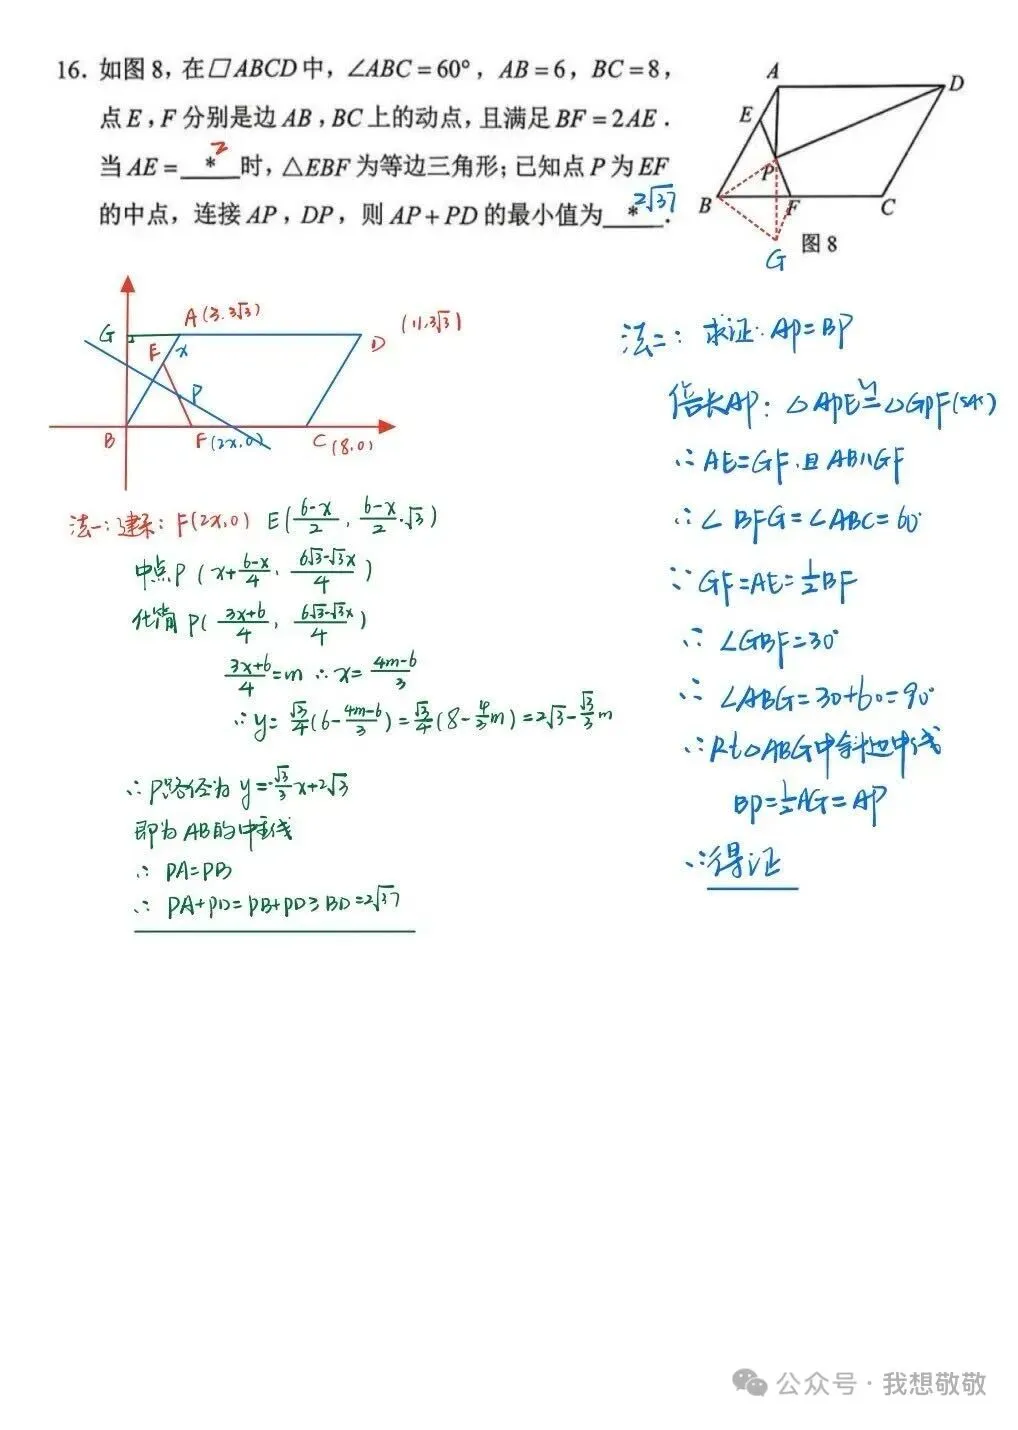 16. 如图8,在□ABCD中,∠ABC=60°,AB=6,BC=8,
点E,F分别是边AB,BC上的动点,且满足BF=2AE.
当AE=__*__时,△EBF为等边三角形;已知点P为EF
2
的中点,连接AP,DP,则AP+PD的最小值为__*__.
2√37
A
D
E
P
B
F
C
G
图8
A(3,3√3)
(11,3√3)
G
E
x
D
P
B
F(2x,0)
C(8,0)
法一:建系:F(2x,0) E(\frac{6-x}{2}, \frac{6-x}{2}·√3)
中点P(x+\frac{6-x}{4}, \frac{6√3-√3x}{4})
化简P(\frac{3x+6}{4}, \frac{6√3-√3x}{4})
\frac{3x+6}{4}=m ∴x=\frac{4m-6}{3}
∴y=\frac{√3}{4}(6-\frac{4m-6}{3})=\frac{√3}{4}(8-\frac{4}{3}m)=2√3-\frac{√3}{3}m
∴P路径为y=-\frac{√3}{3}x+2√3
即为AB的中垂线
∴PA=PB
∴PA+PD=PB+PD≥BD=2√37
法二:求证:AP=BP
倍长AP:△APE≌△GPF(SAS)
∴AE=GF,且AB∥GF
∴∠BFG=∠ABC=60°
∵GF=AE=\frac{1}{2}BF
∴∠GBF=30°
∴∠ABG=30+60=90°
∴Rt△ABG中斜边中线
BP=\frac{1}{2}AG=AP
∴得证
公众号·我想敬敬